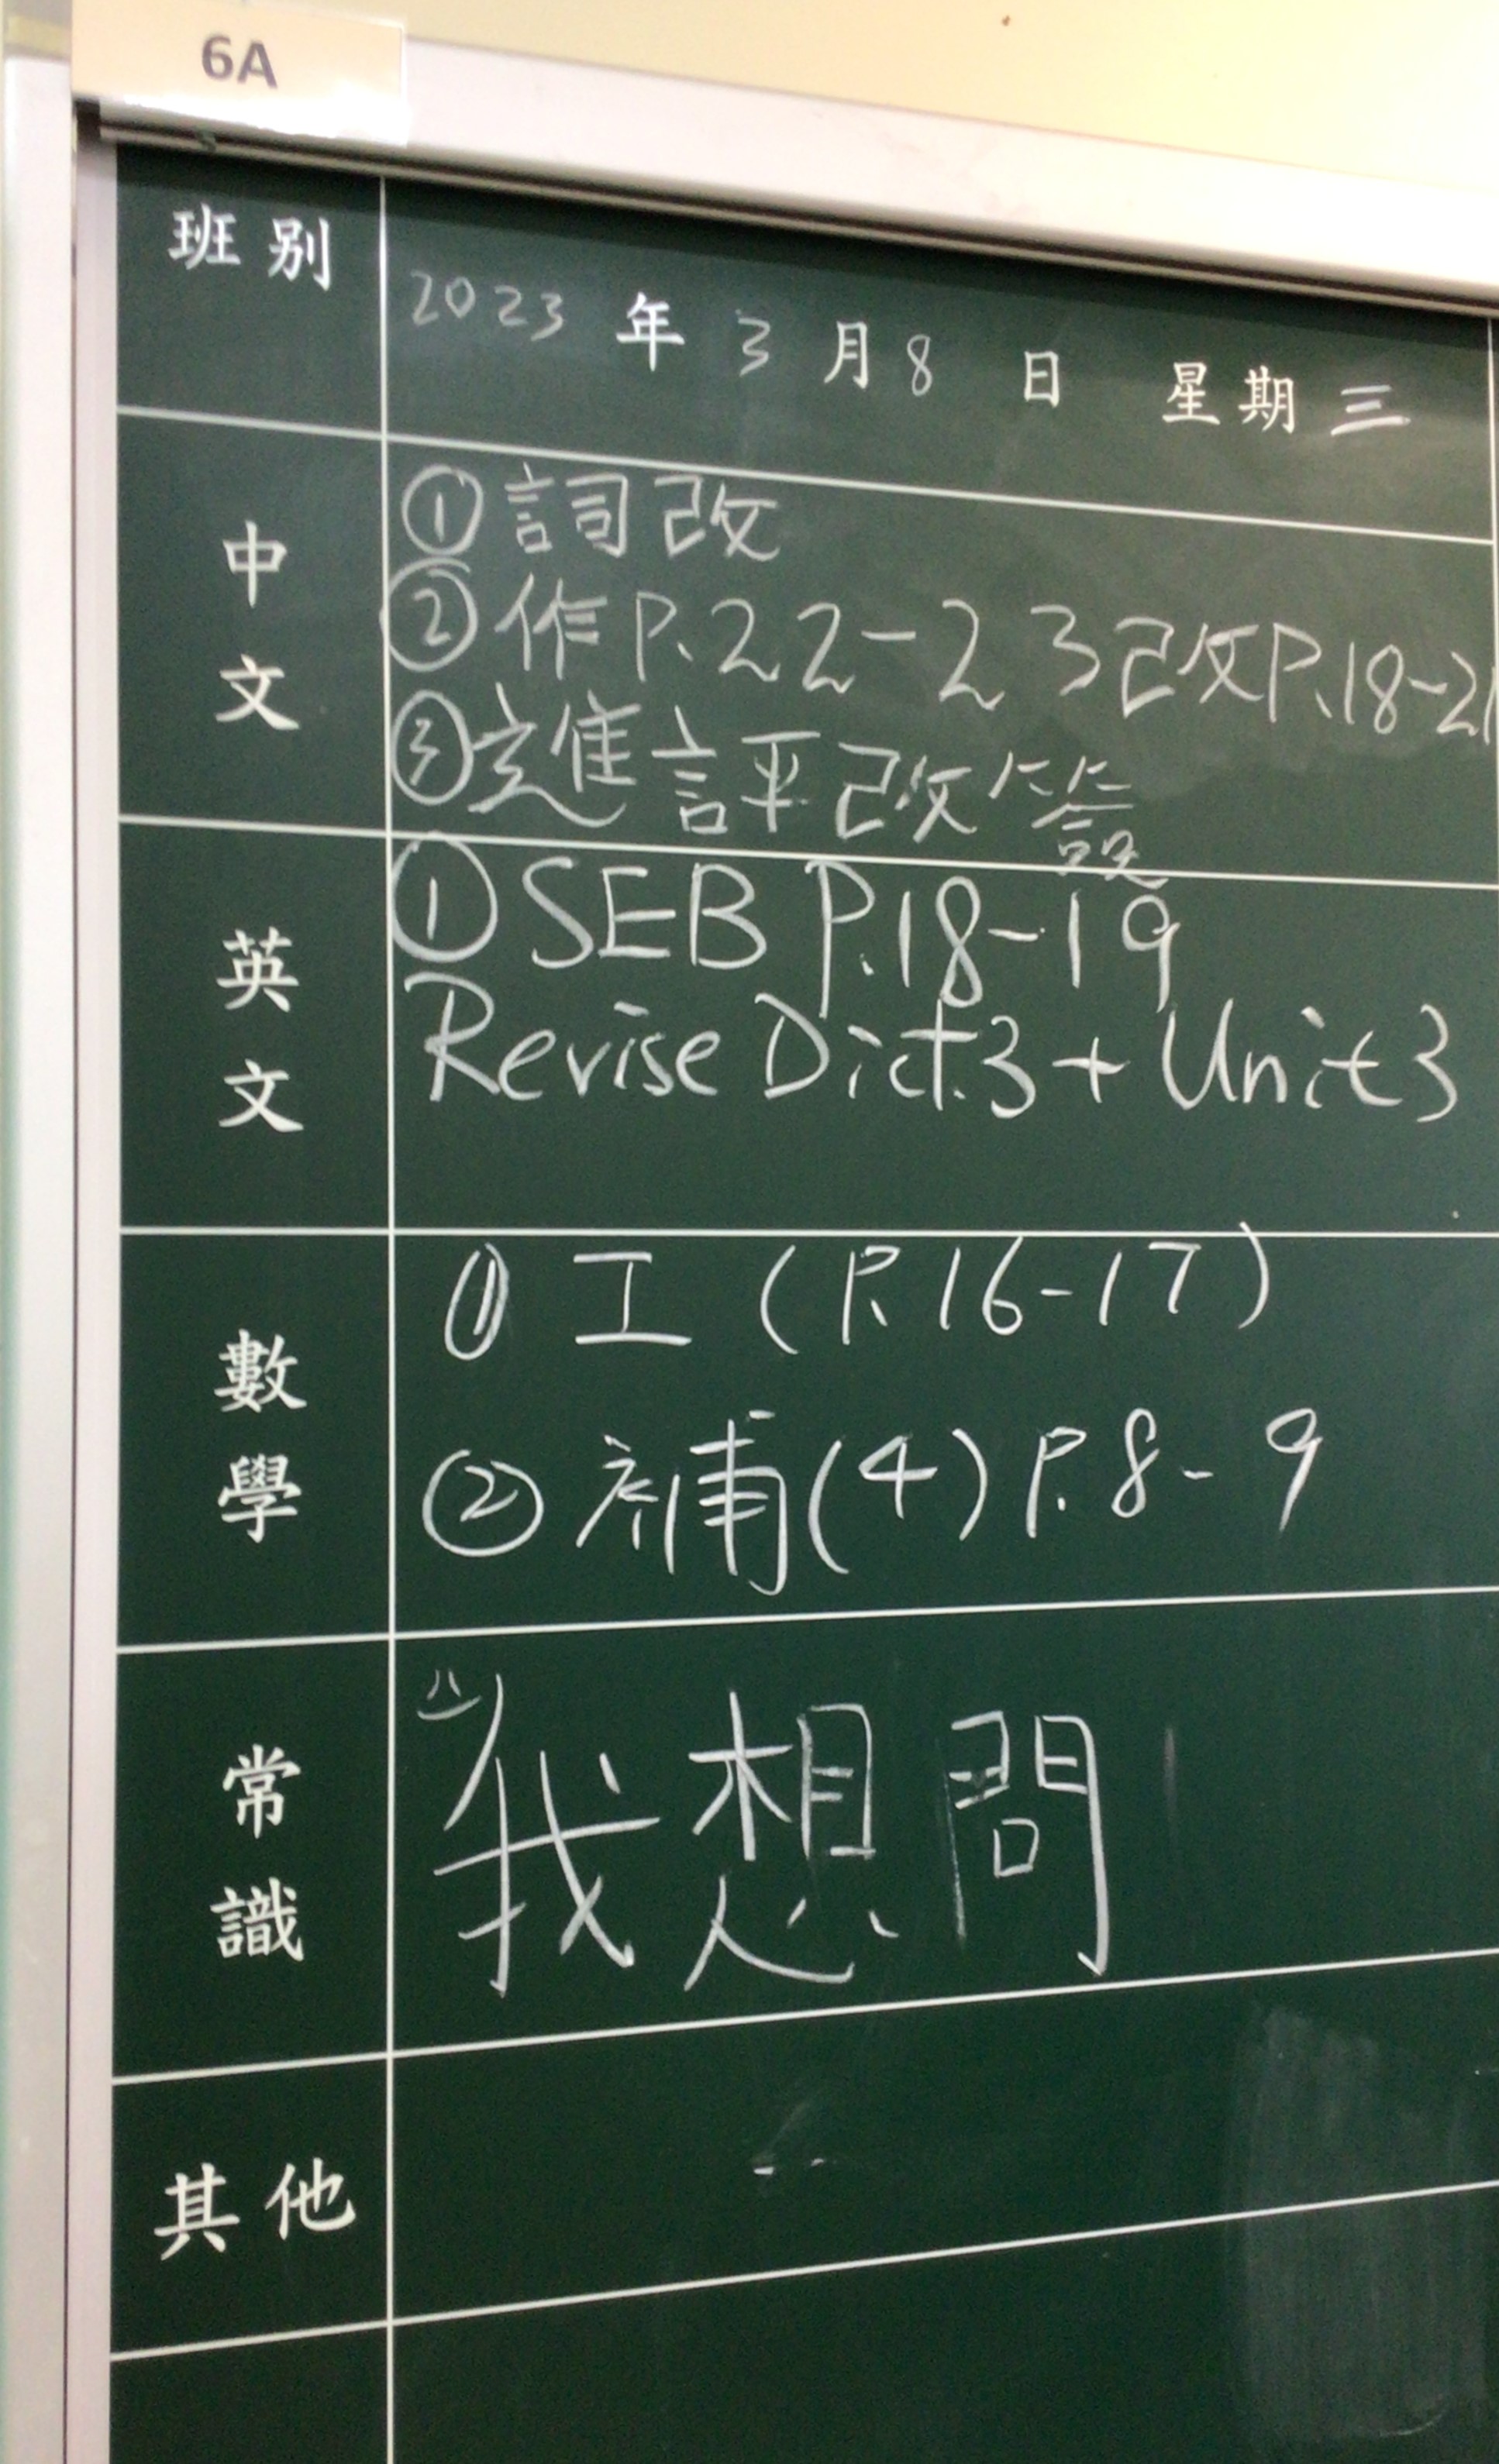 6A
班別
2023 年 3 月 8 日 星期 三
中文
① 詞改
② 作P.22-23改P.18-21
③ 進評改簽
英文
① SEB P.18-19
Revise Dict.3 + Unit 3
數學
① 工 (P.16-17)
② 補(4) P.8-9
常識
我想問
其他